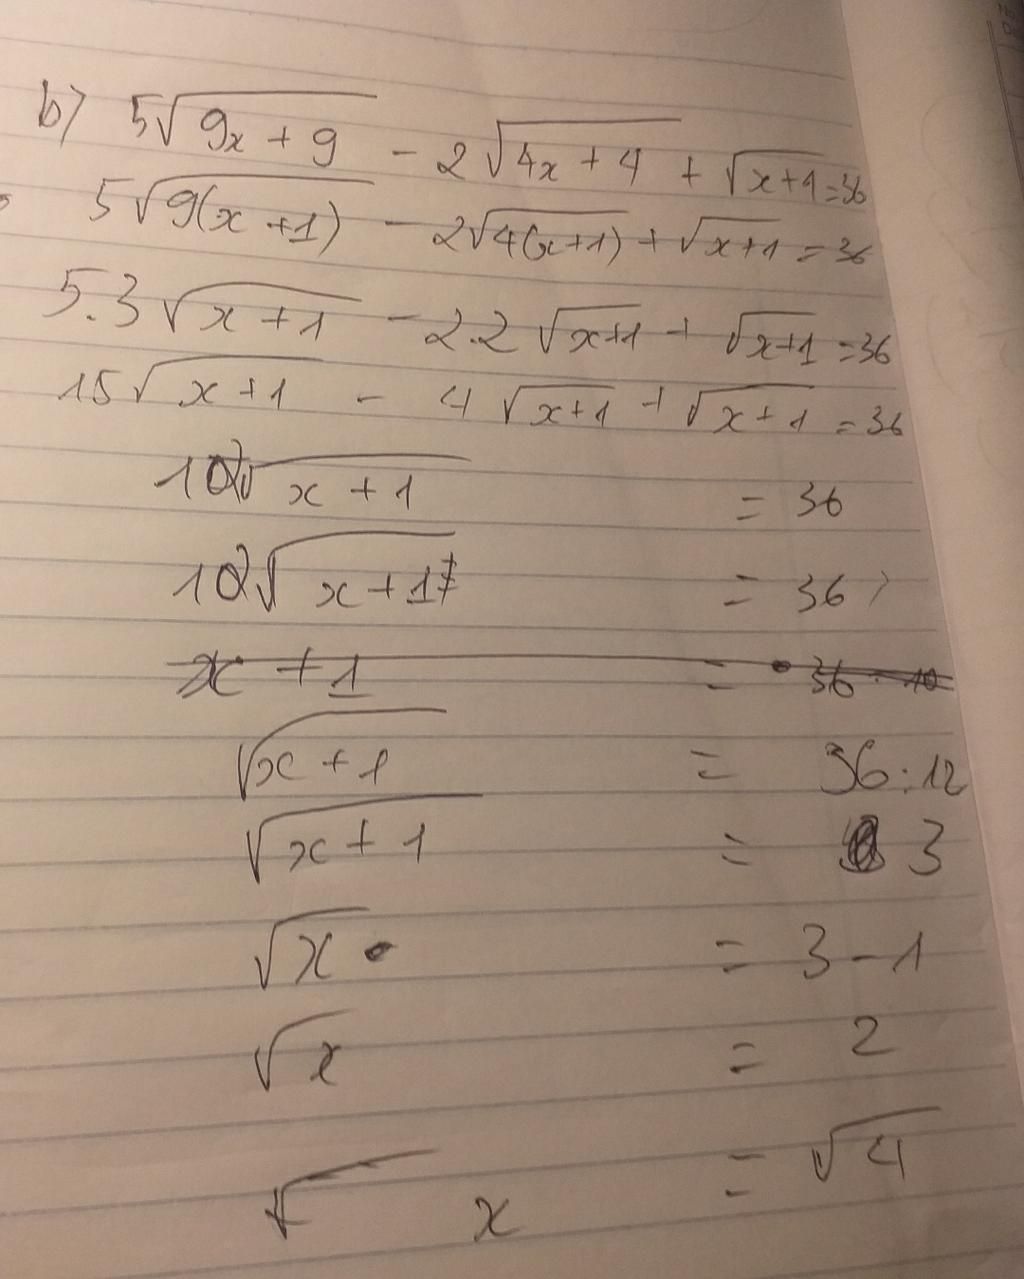 b) 5√(9x + 9) - 2√(4x + 4) + √(x+1) = 36
5√(9(x + 1)) - 2√(4(x+1)) + √(x+1) = 36
5.3√(x + 1) - 2.2√(x+1) + √(x+1) = 36
15√(x + 1) - 4√(x+1) + √(x + 1) = 36
12√(x + 1) = 36
12√(x + 1) = 36
x + 1 = 36 : 10
√(x + 1) = 36 : 12
√(x + 1) = 3
√x = 3 - 1
√x = 2
√ x = √4